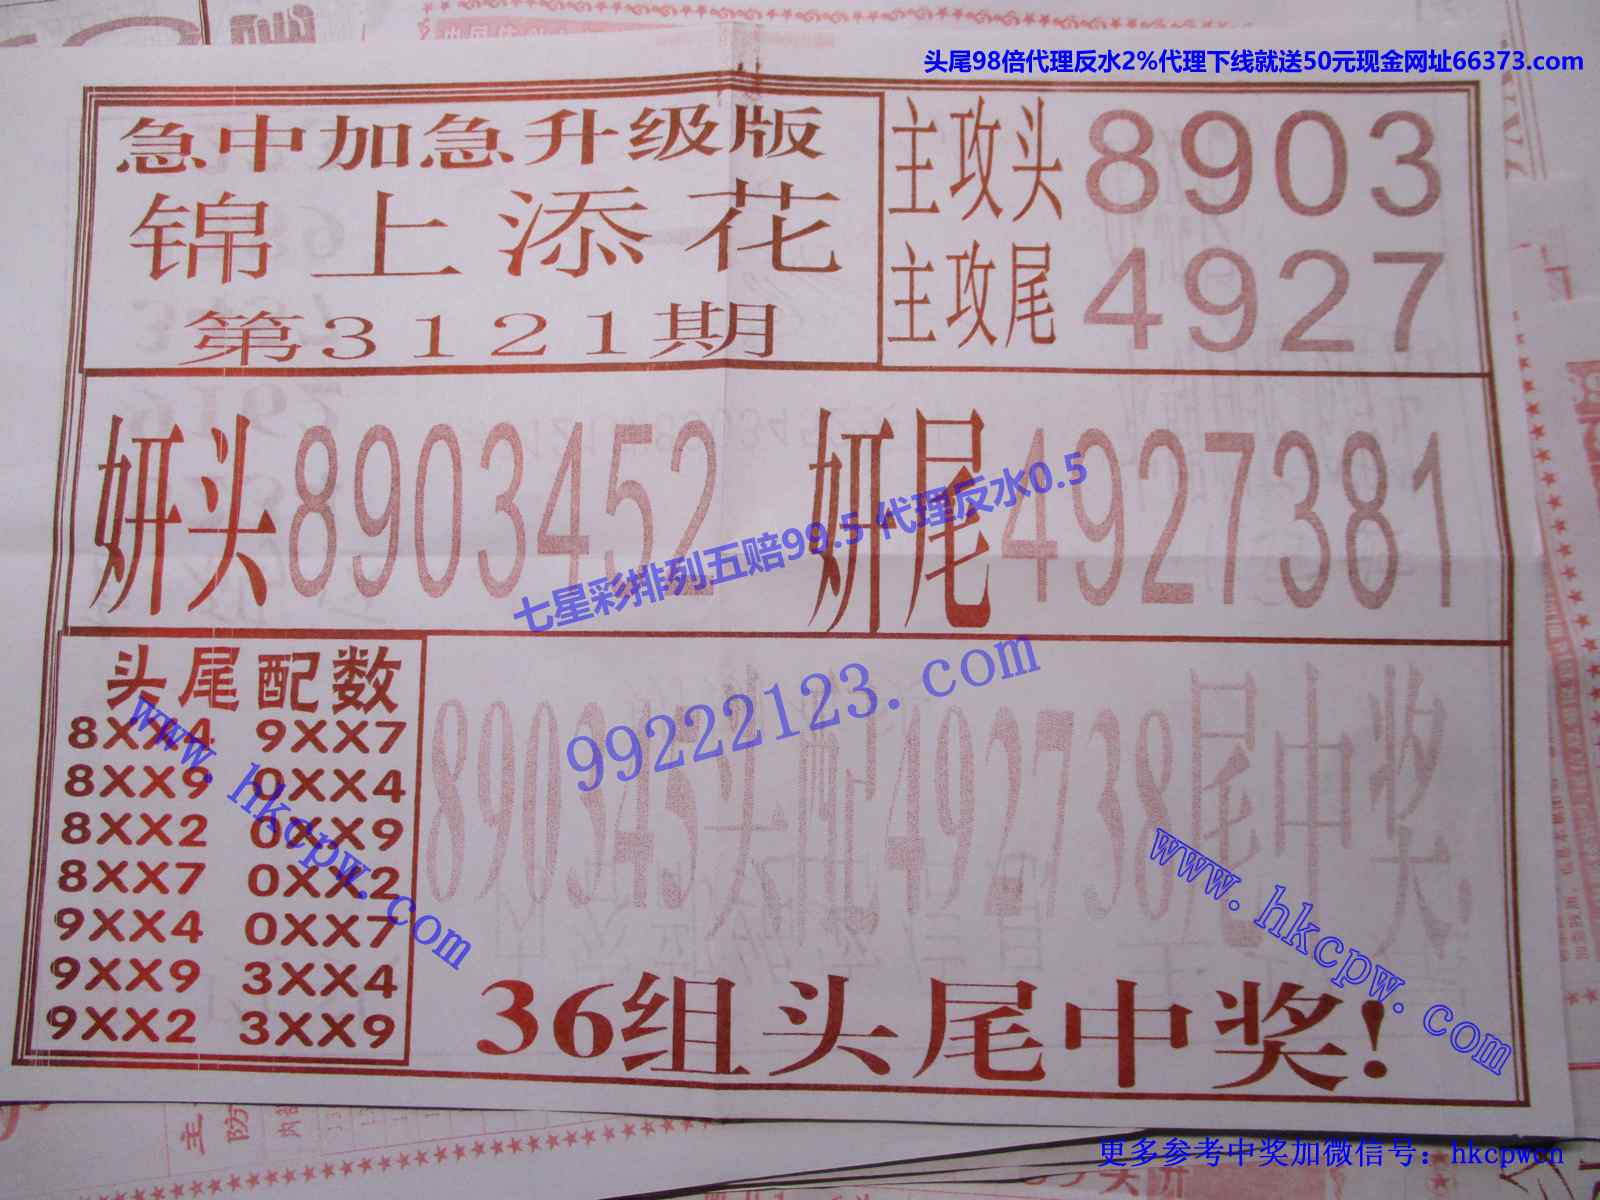 头尾98倍代理反水2%代理下线就送50元现金网址66373.com
急中加急升级版
锦上添花
第3121期
主攻头8903
主攻尾4927
妍头8903452 妍尾4927381
七星彩排列五赔99.5 代理反水0.5
99222123.com
头尾配数
8XX4 9XX7
8XX9 0XX4
8XX2 0XX9
8XX7 0XX2
9XX4 0XX7
9XX9 3XX4
9XX2 3XX9
www.hkcpw.com
890345头配492738尾中奖
www.hkcpw.com
36组头尾中奖!
更多参考中奖加微信号：hkcpwcn
主防